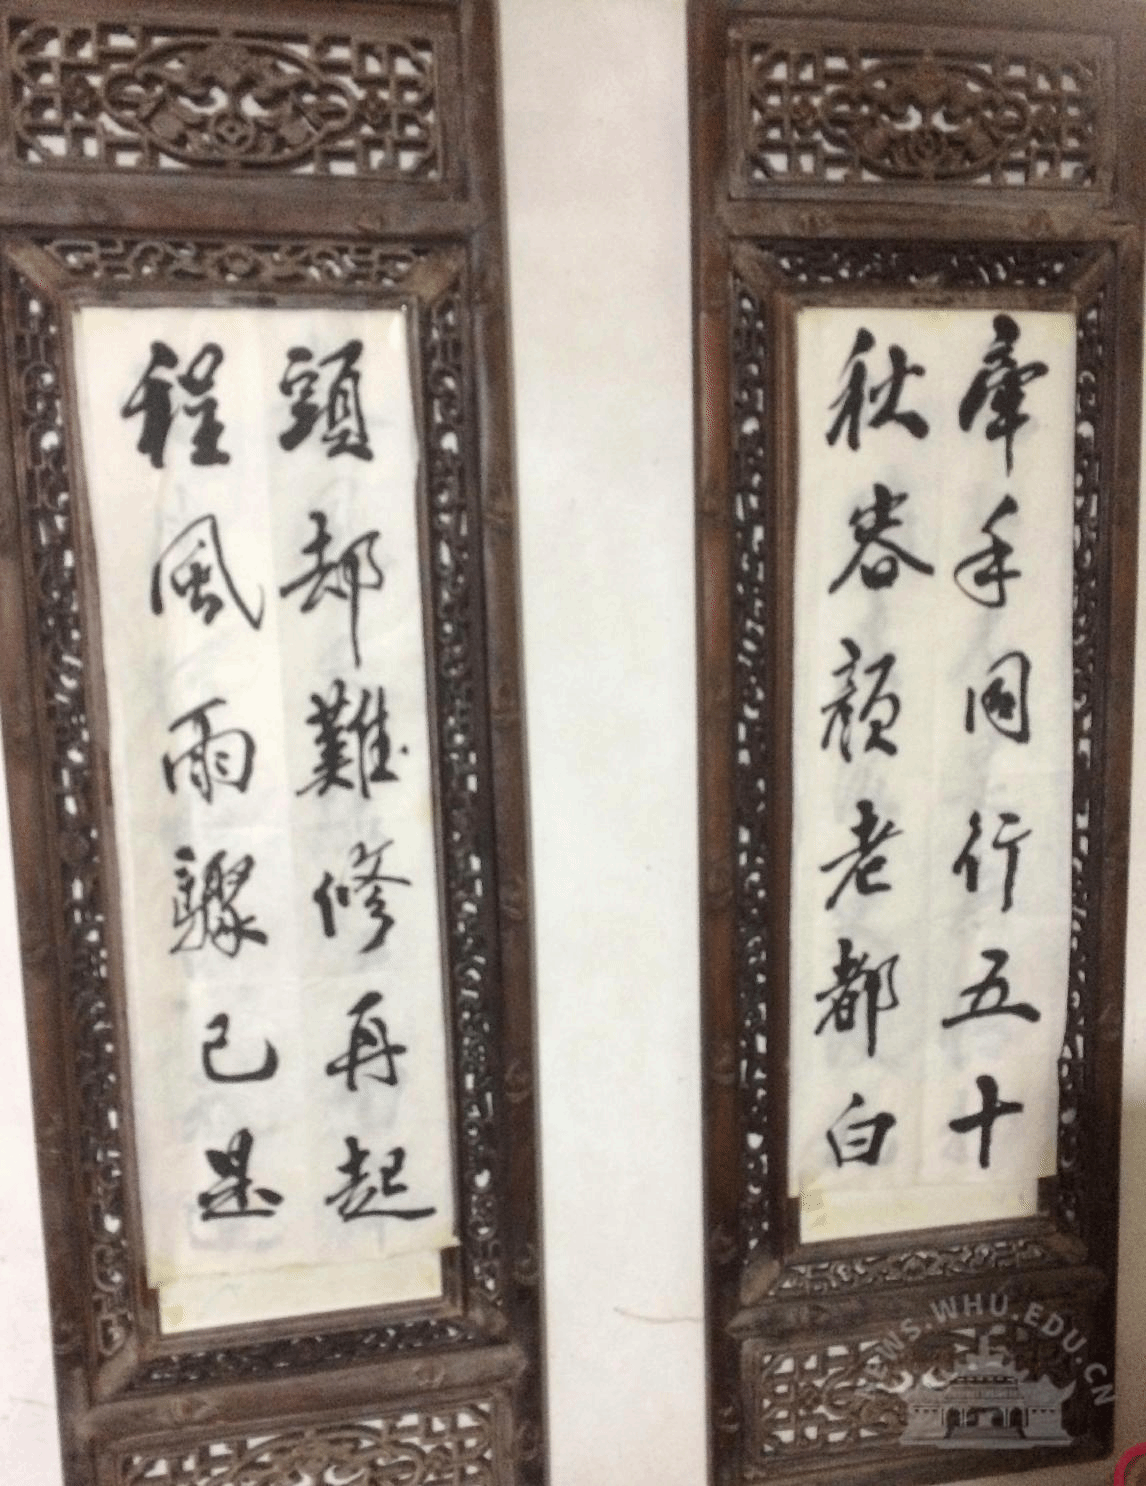 牵手同行五十
秋容颜老都白
頭却難修再起
程風雨驟已是
NEWS.WHU.EDU.CN